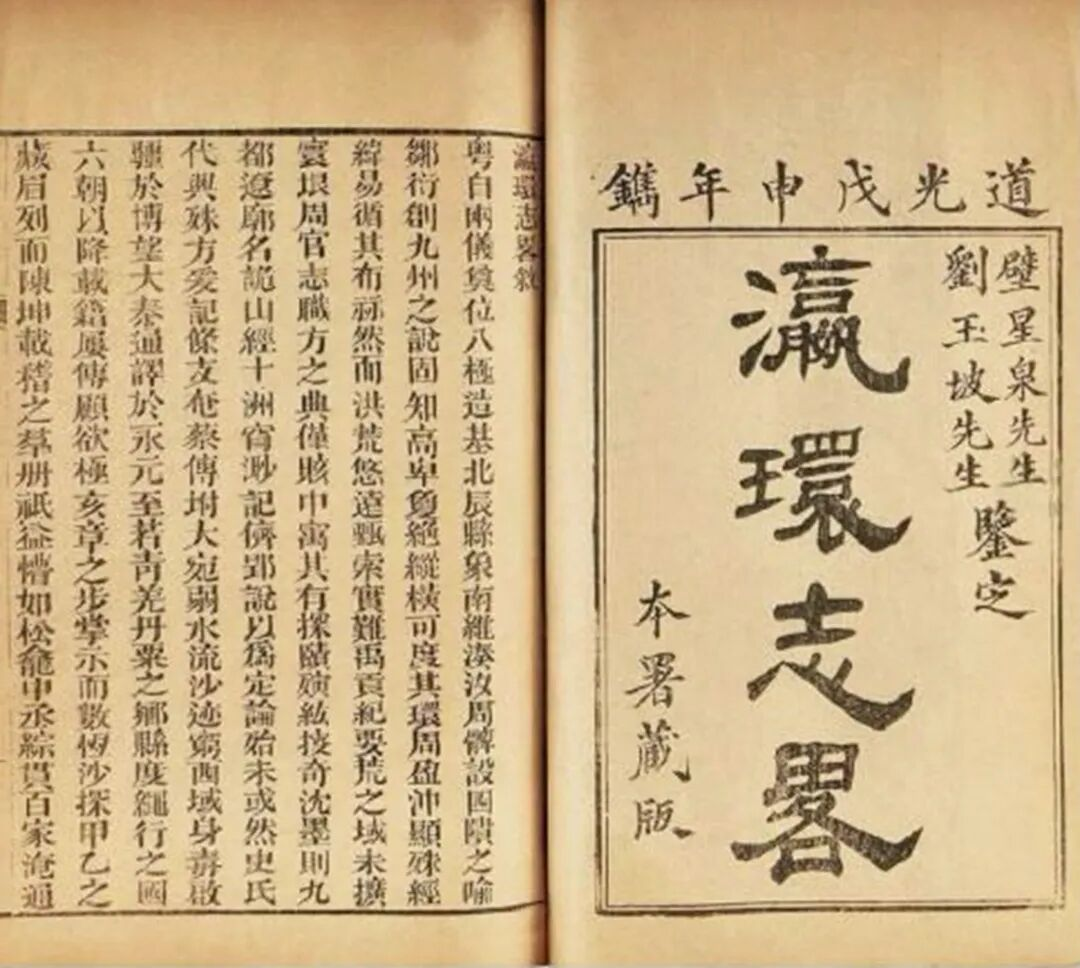 道光戊申年鐫
壁星泉先生
劉玉坡先生
鑒定
瀛環志畧
本署藏版
瀛環志畧敘
粵自兩儀奠位八極造基北辰縣象南維湊汝周髀設四隤之喻
鄒衍創九州之說固知高卑夐絕縱橫可度其環周盈沖顯殊經
緯易循其布祘然而洪荒悠遠甄索實難禹貢紀要荒之域未擴
寰垠周官志職方之典僅賅中寓其有探賾殫紘技奇沈墨則九
都遼廓名詭山經十洲窅渺記儕郢說以爲定論始未或然史氏
代興殊方爰記條支奄蔡傳坿大宛弱水流沙迹窮西域身毒啟
疆於博望大秦通譯於永元至若青羌丹粟之鄉縣度繩行之國
六朝以降載籍屢傳顧欲極亥章之步掌示而數恆沙探甲乙之
藏眉列而陳坤載稽之羣册祇益懵如松龕中丞綜貫百家淹通